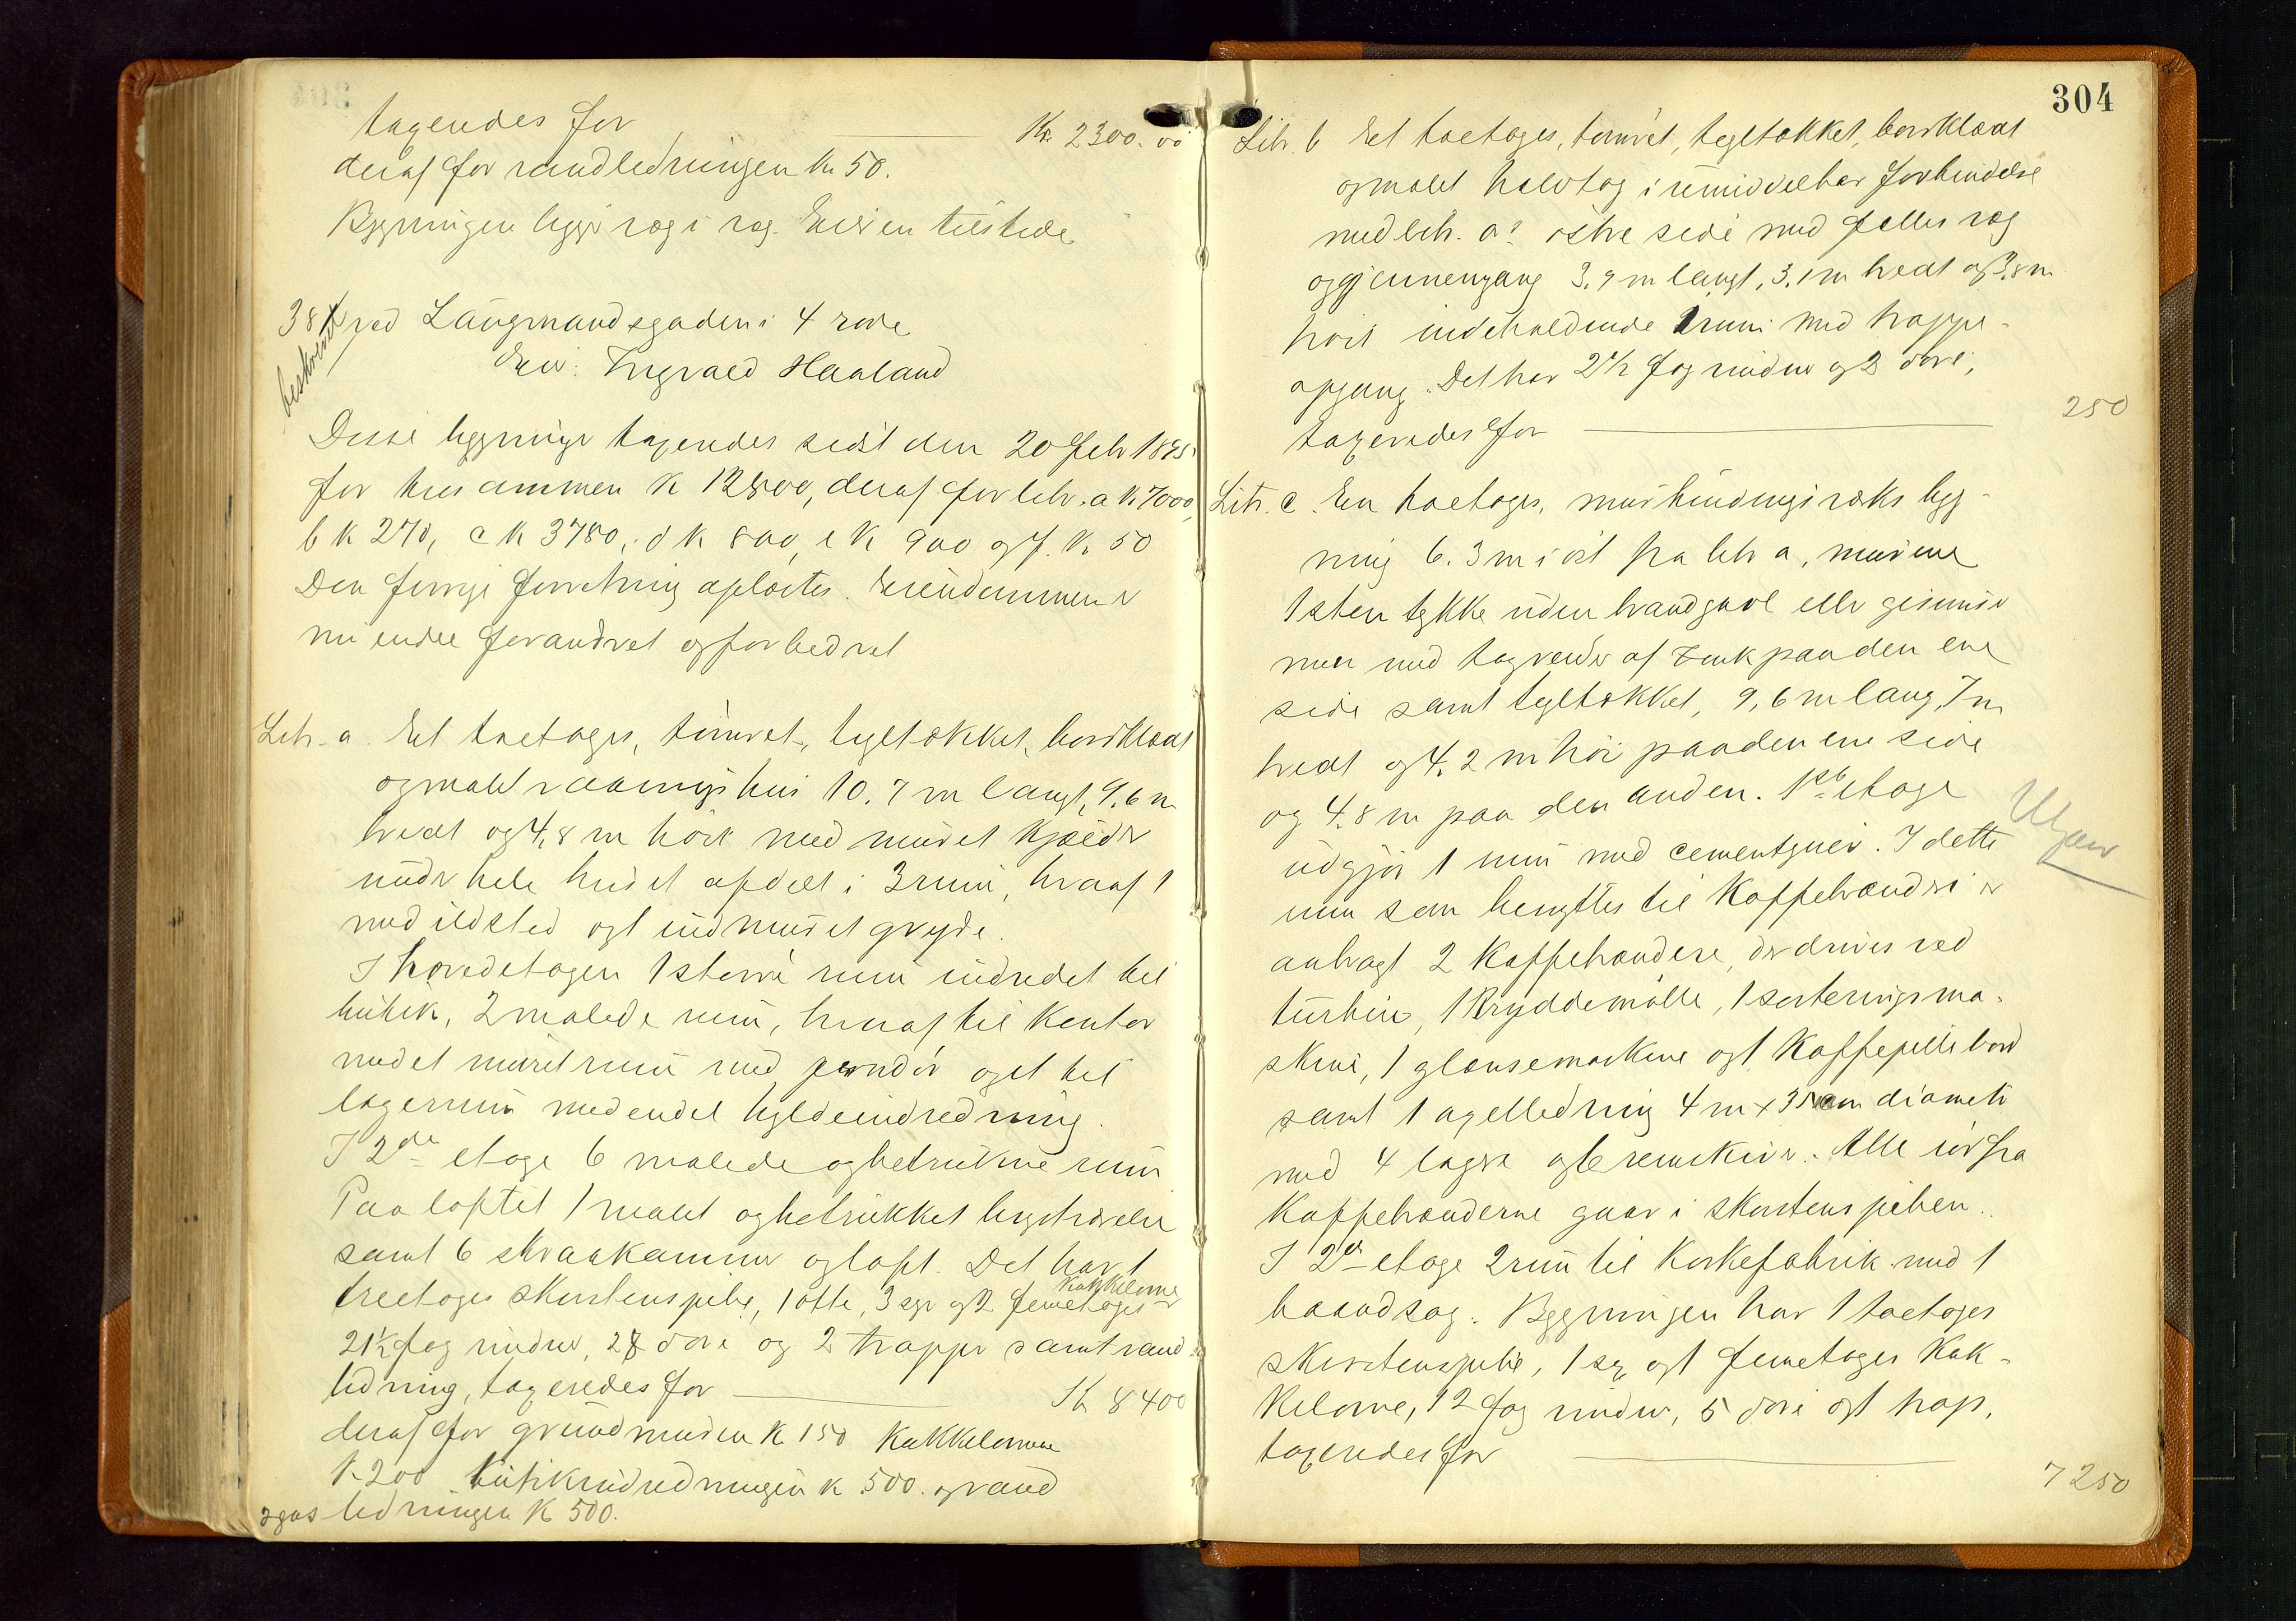 taxeredes for Kr. 2300.00
deraf for vandledningen Kr 50.
Bygningen ligger væg i væg. Eieren tilstede
381 ved Langmandsgaden i 4 rode
beskrevet
Eier: Ingvald Haaland
Disse bygninger taxeredes sidst den 20 Febr 1895
for tilsammen K 12800, deraf for litr. a K 7000,
b K 270, c K 3780, d K 800, e K 900 og f. K 50
Den forrige forretning oplæstes. Eiendommen er
nu endel forandret og forbedret
Litr. a Et toetages, tømret, tegltækket, bordklædt
og malet vaaningshus 10.7 m langt, 9.6 m
bredt og 4,8 m høit med muret kjælder
under hele huset afdelt i 3 rum, hvoraf 1
med ildsted og 1 indmuret gryde.
I hovedetagen 1 større rum indredet til
butik, 2 malede rum, hvoraf til kontor
med et muret rum med jerndør og et til
lagerrum med endel hyldeindredning.
I 2den etage 6 malede og betrukne rum
Paa loftet 1 malet og betrukket kvistværelse
samt 6 skraakammer og loft. Det har 1
treetages skorstenspibe, 1 otte, 3 syv og 2 femetages kakkelovne
21½ fag vinduer, 28 døre og 2 trapper samt vand-
ledning, taxeredes for K 8400
deraf for grundmuren K 150 Kakkelovnene
K 200 butikindredningen K 500. og vand
og gas ledningen K 500.
304
Litr. b Et toetages, tømret, tegltækket, bordklædt
og malet halvtag i umiddelbar forbindelse
med litr. a's østre side med fælles væg
og gjennemgang 3.9 m langt, 3.1 m bredt og 3,8 m
høit indeholdende 1 rum med trappe-
opgang. Det har 2½ fag vinduer og 2 døre,
taxeredes for 250
Litr. c. En toetages, murbindingsværks byg-
ning 6.3 m i øst fra litr a, murene
1 sten tykke uden brandgavl eller gesimser
men med tagrender af zink paa den ene
side samt tegltækket, 9,6 m lang, 7 m
bredt og 4.2 m høi paa den ene side
og 4.8 m paa den anden. 1ste etage
udgjør 1 rum med cementgulv. I dette
rum som benyttes til Kaffebrænderi er
anbragt 2 Kaffebrændere, der drives ved
turbin, 1 Kryddemølle, 1 sorteringsma-
skine, 1 glansemaskine og 1 Kaffepillebord
samt 1 axelledning 4 m x 35 mm diameter
med 4 lagere og 6 remskiver. Alle rør fra
Kaffebrænderne gaar i skorstenspiben.
I 2den etage 2 rum til Korkefabrik med 1
baandsag. Bygningen har 1 toetages
skorstenspibe, 1 sex og 1 femetages Kak-
kelovne, 12 fag vinduer, 5 døre og 1 trap.
taxeredes for 7250